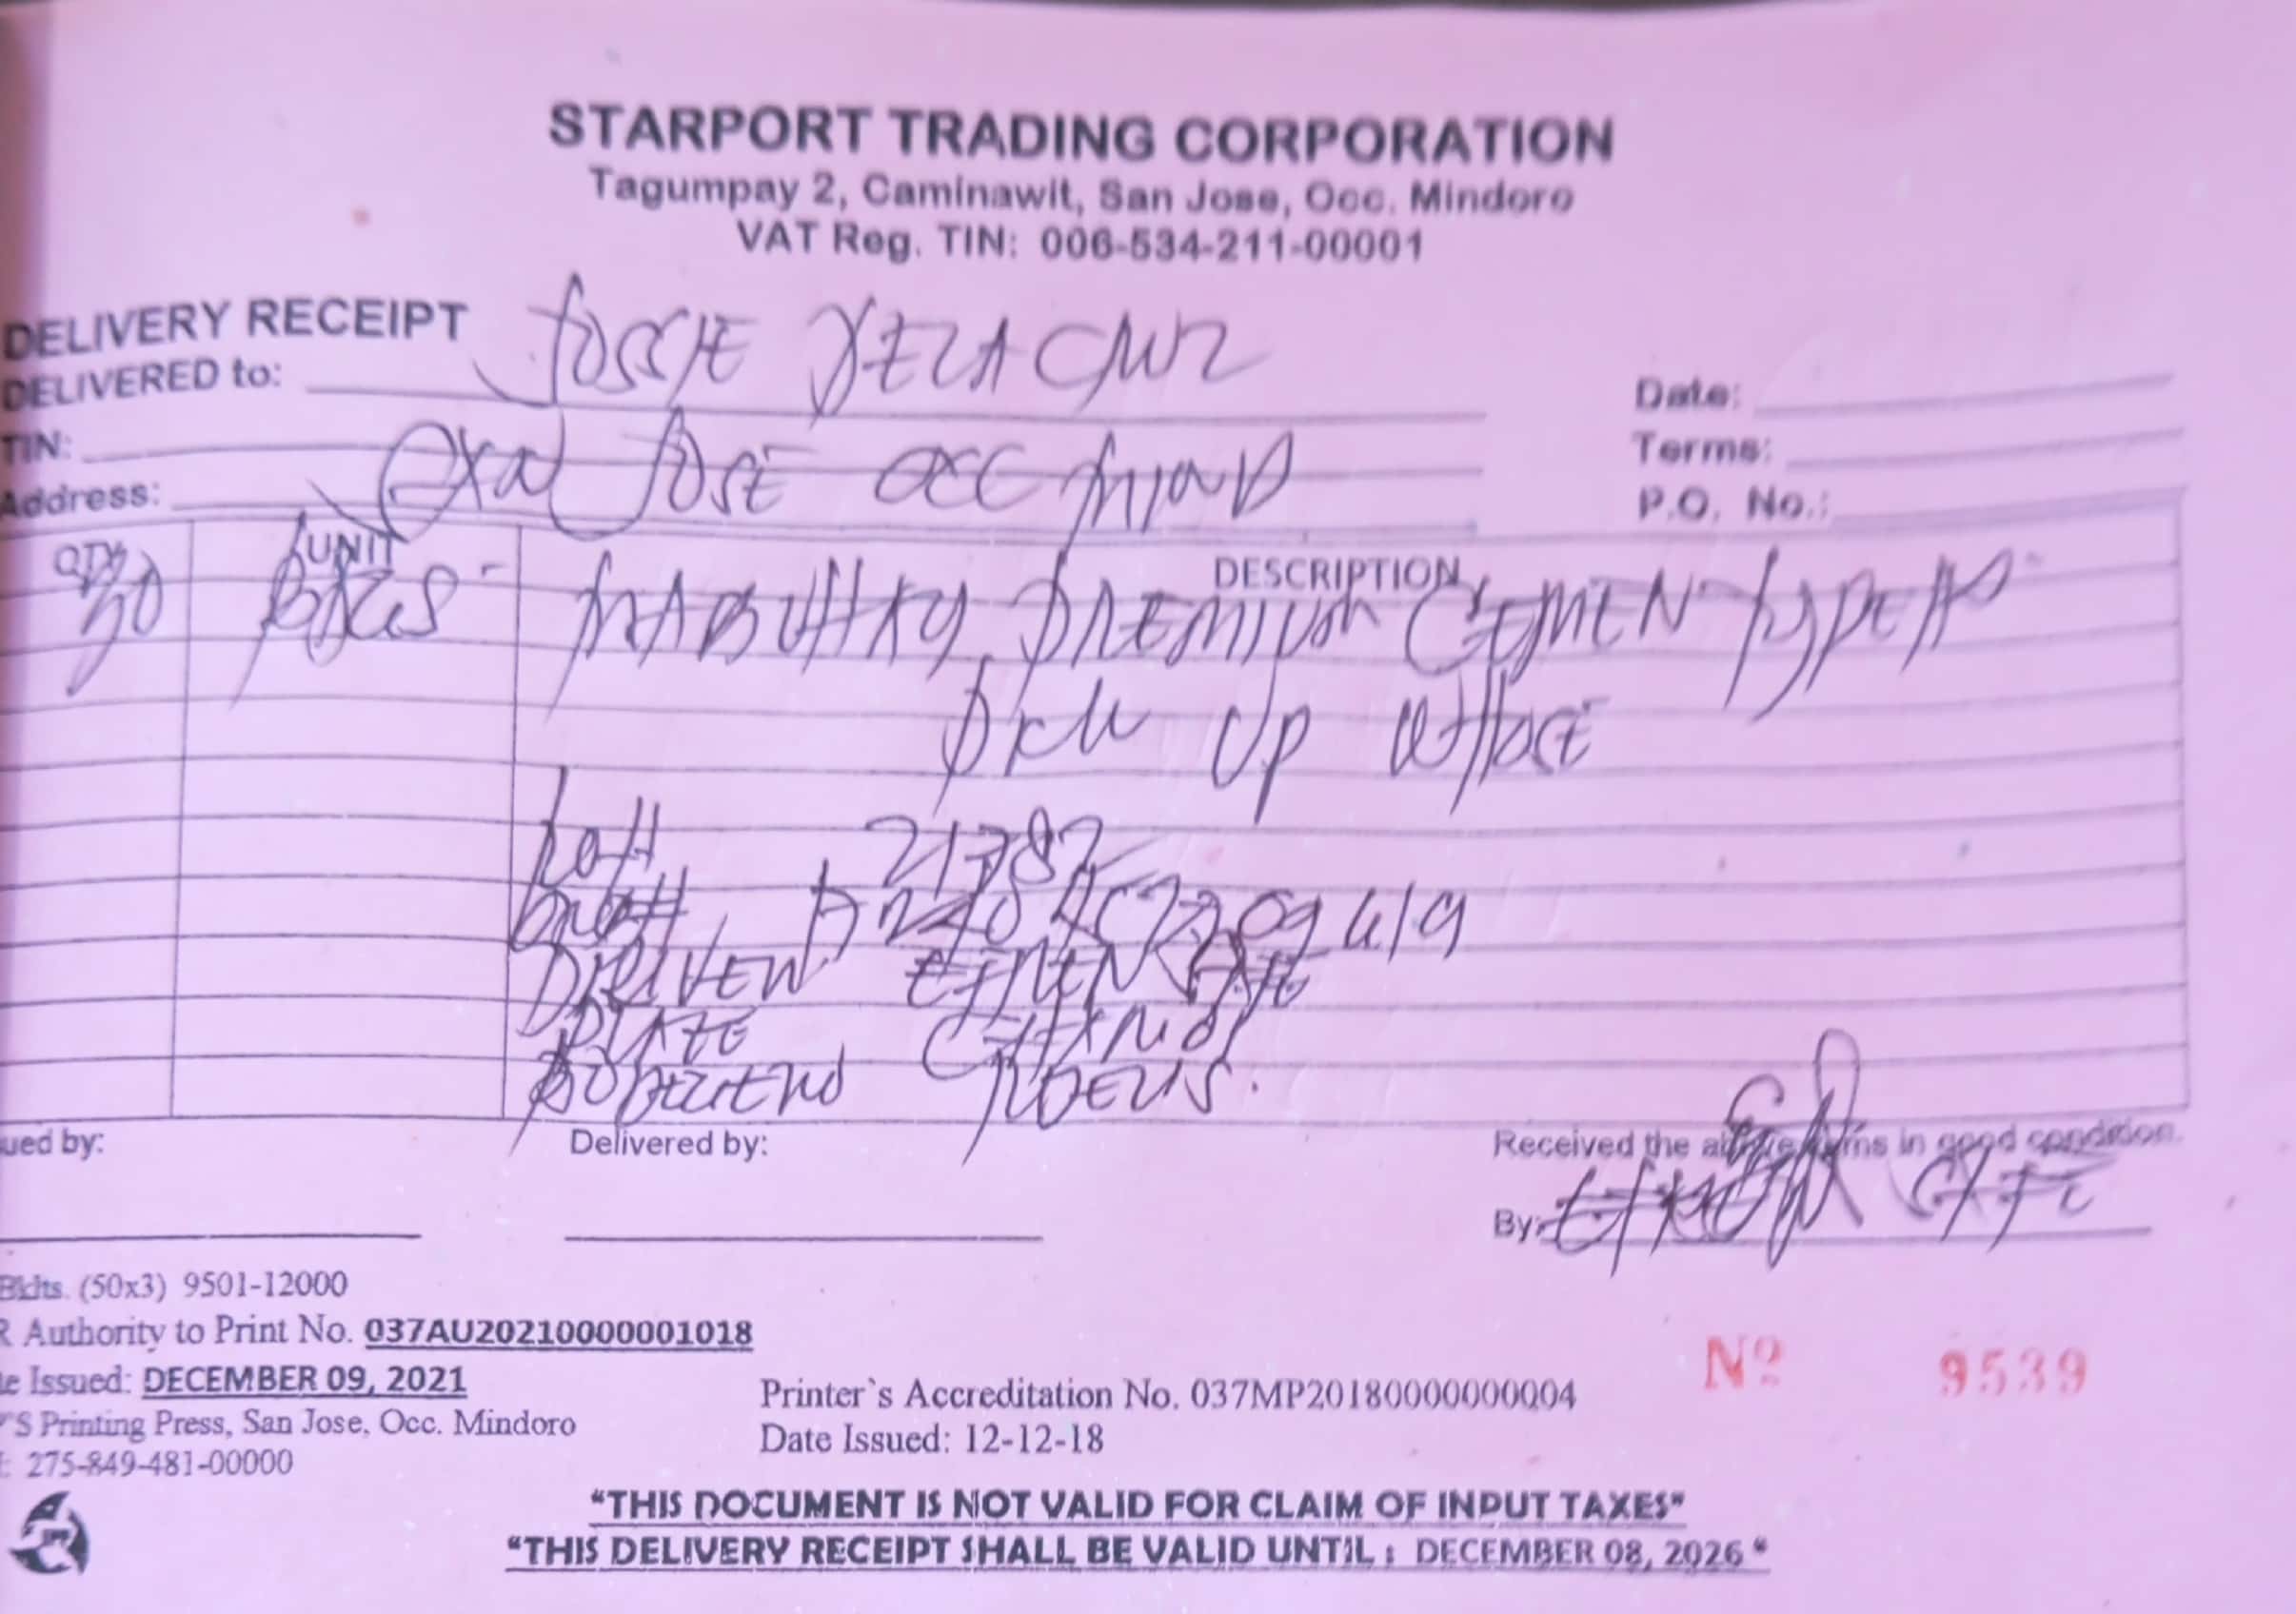 STARPORT TRADING CORPORATION
Tagumpay 2, Caminawit, San Jose, Occ. Mindoro
VAT Reg. TIN: 006-534-211-00001
DELIVERY RECEIPT
DELIVERED to: JOSSIE DELA CRUZ
Date:
TIN:
Terms:
Address: SAN JOSE OCC MIND
P.O. No.:
QTY UNIT DESCRIPTION
30 BAGS MABUHAY PREMIUM CEMEN TYPE
PICK UP
21782
PLATE
ued by:
Delivered by:
Received the above items in good condition.
By:
Bklts. (50x3) 9501-12000
R Authority to Print No. 037AU20210000001018
e Issued: DECEMBER 09, 2021
'S Printing Press, San Jose, Occ. Mindoro
: 275-849-481-00000
Printer`s Accreditation No. 037MP20180000000004
Date Issued: 12-12-18
Nº 9539
"THIS DOCUMENT IS NOT VALID FOR CLAIM OF INPUT TAXES"
"THIS DELIVERY RECEIPT SHALL BE VALID UNTIL : DECEMBER 08, 2026 "